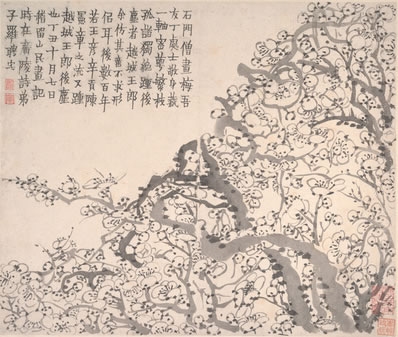 石門僧畫梅吾
友丁處士敬身藏
一軸密萼繁枝
孤詣獨絕踵後
塵者越城王郎
今傳其畫不求形
似耳後數百年
若王 陳
章之流又踵
越城王郎後塵
也丁丑十月七日
稽留山民畫記
時在廣陵詩弟
子羅聘